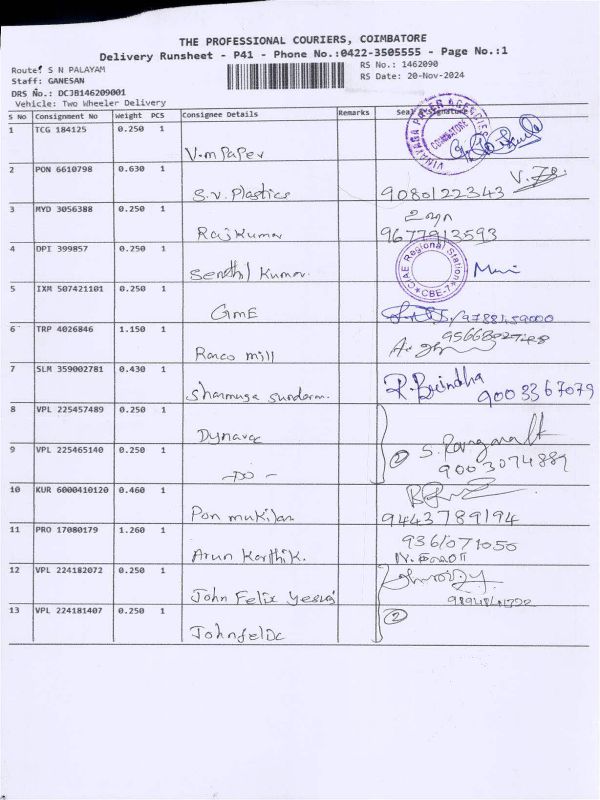 THE PROFESSIONAL COURIERS, COIMBATORE
Delivery Runsheet - P41 - Phone No.:0422-3505555 - Page No.:1
Route: S N PALAYAM
RS No.: 1462090
Staff: GANESAN
RS Date: 20-Nov-2024
DRS No.: DCJB146209001
Vehicle: Two Wheeler Delivery
S No Consignment No Weight PCS Consignee Details Remarks Seal Signature
1 TCG 184125 0.250 1
V.m Paper
VINAYAGA PAPER AGENCIES COIMBATORE
2 PON 6610798 0.630 1
S.V. Plastics 9080122343
3 MYD 3056388 0.250 1
Rajkumar 9677913593
4 DPI 399857 0.250 1
Senthil Kumar.
CIAE Regional Station CBE-7
5 IXM 507421101 0.250 1
GmE
6 TRP 4026846 1.150 1
Ranco mill
7 SLM 359002781 0.430 1
Shanmuga Sundaram. R. Brindha 9003367079
8 VPL 225457489 0.250 1
9 VPL 225465140 0.250 1
-DO- 2
10 KUR 6000410120 0.460 1
Pon mukilan 9443789194
11 PRO 17080179 1.260 1
Arun Karthik. 9361071050
12 VPL 224182072 0.250 1
John Felix
13 VPL 224181407 0.250 1
Johnfelix 2